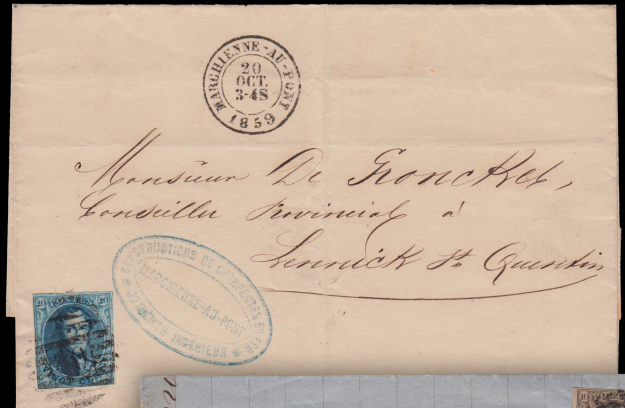 MARCHIENNE-AU-PONT
20
OCT.
3-4S
1859
Monsieur De Gronckel,
Conseiller Provincial à
Lennick St. Quentin
CONSTRUCTIONS DE CHARPENTES EN FER
MARCHIENNE-AU-PONT
INGÉNIEUR
20 POSTES 20